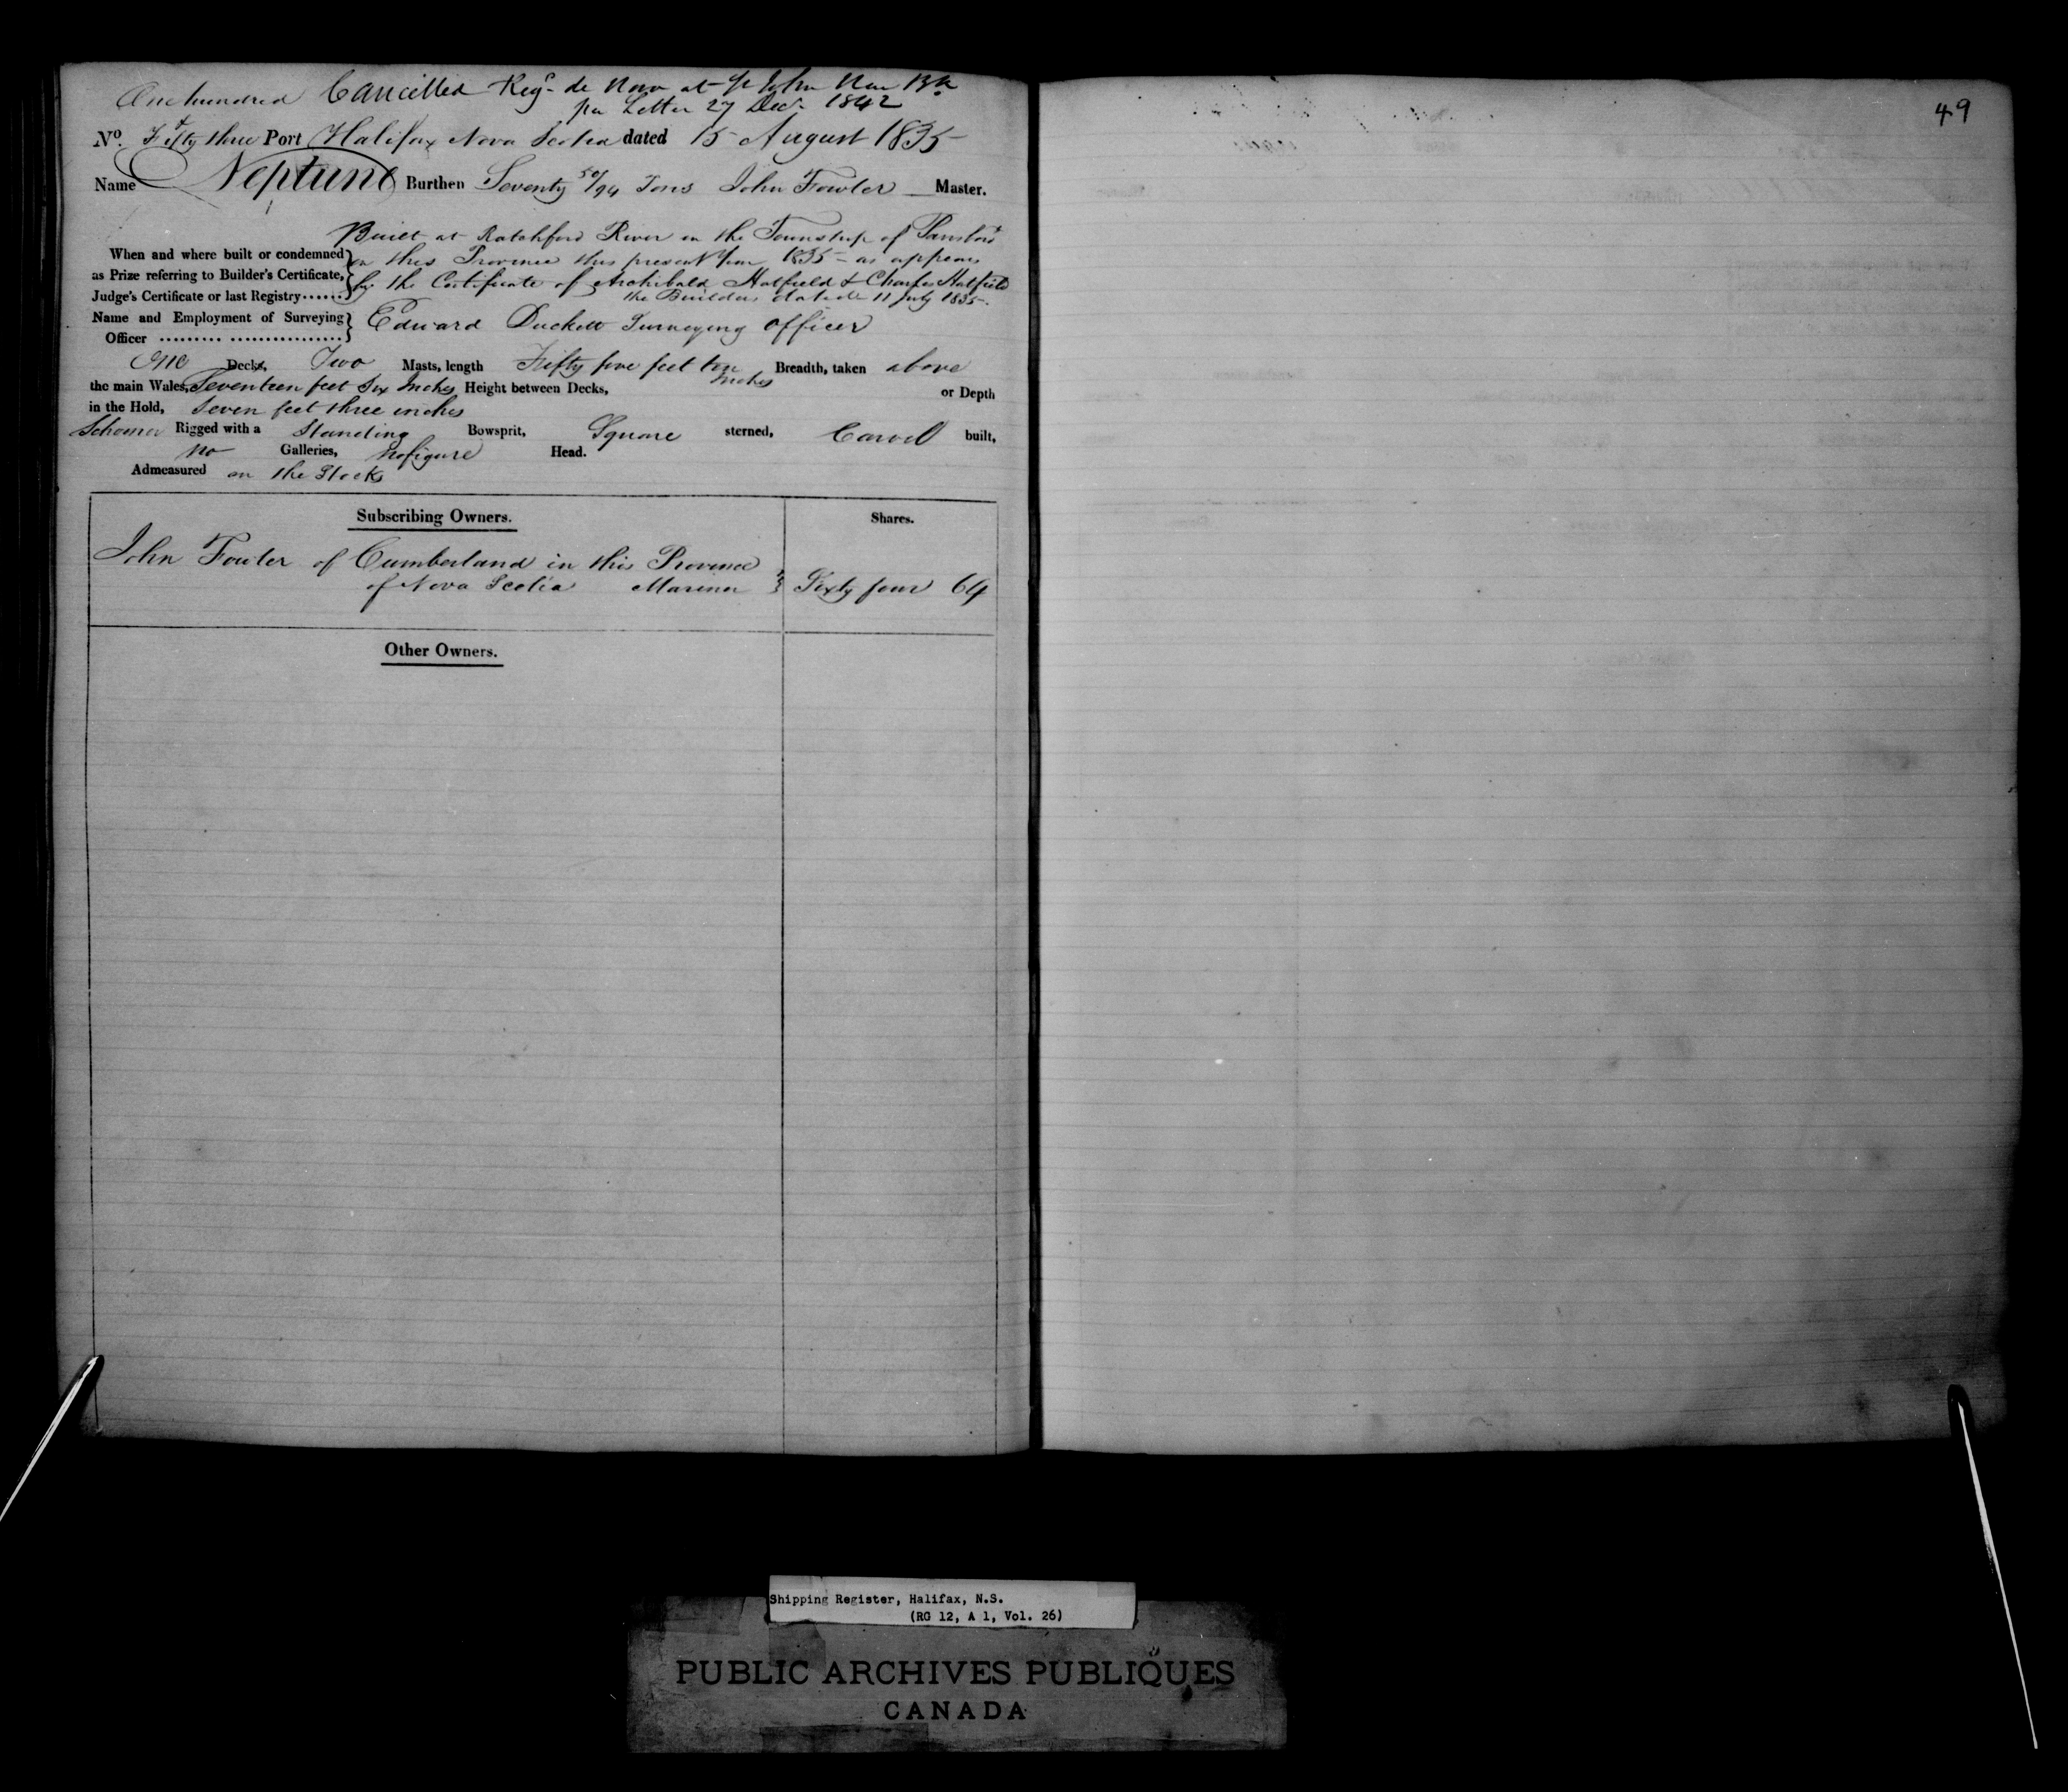 One hundred Cancelled Regd de Novo at St John New Bk
per Letter 27 Decr 1842
49
No. & Fifty three Port Halifax Nova Scotia dated 15 August 1835
Name Neptune Burthen Seventy 50/94 Tons John Fowler Master.
Built at Ratchford River in the Township of Parsboro
When and where built or condemned in this Province this present Year 1835 - as appears
as Prize referring to Builder's Certificate, by the Certificate of Archibald Hatfield & Charles Hatfield
Judge's Certificate or last Registry...... the Builders dated 11 July 1835.
Name and Employment of Surveying Edward Duckett Surveying Officer
Officer ......... .................
One Decks, Two Masts, length Fifty five feet ten Inches Breadth, taken above
the main Wales, Seventeen feet Six Inches Height between Decks, or Depth
in the Hold, Seven feet three inches
Schooner Rigged with a Standing Bowsprit, Square sterned, Carvel built,
no Galleries, no figure Head.
Admeasured on the Stocks
Subscribing Owners. Shares.
John Fowler of Cumberland in this Province
of Nova Scotia Mariner Sixty four 64
Other Owners.
Shipping Register, Halifax, N.S.
(RG 12, A 1, Vol. 26)
PUBLIC ARCHIVES PUBLIQUES
CANADA